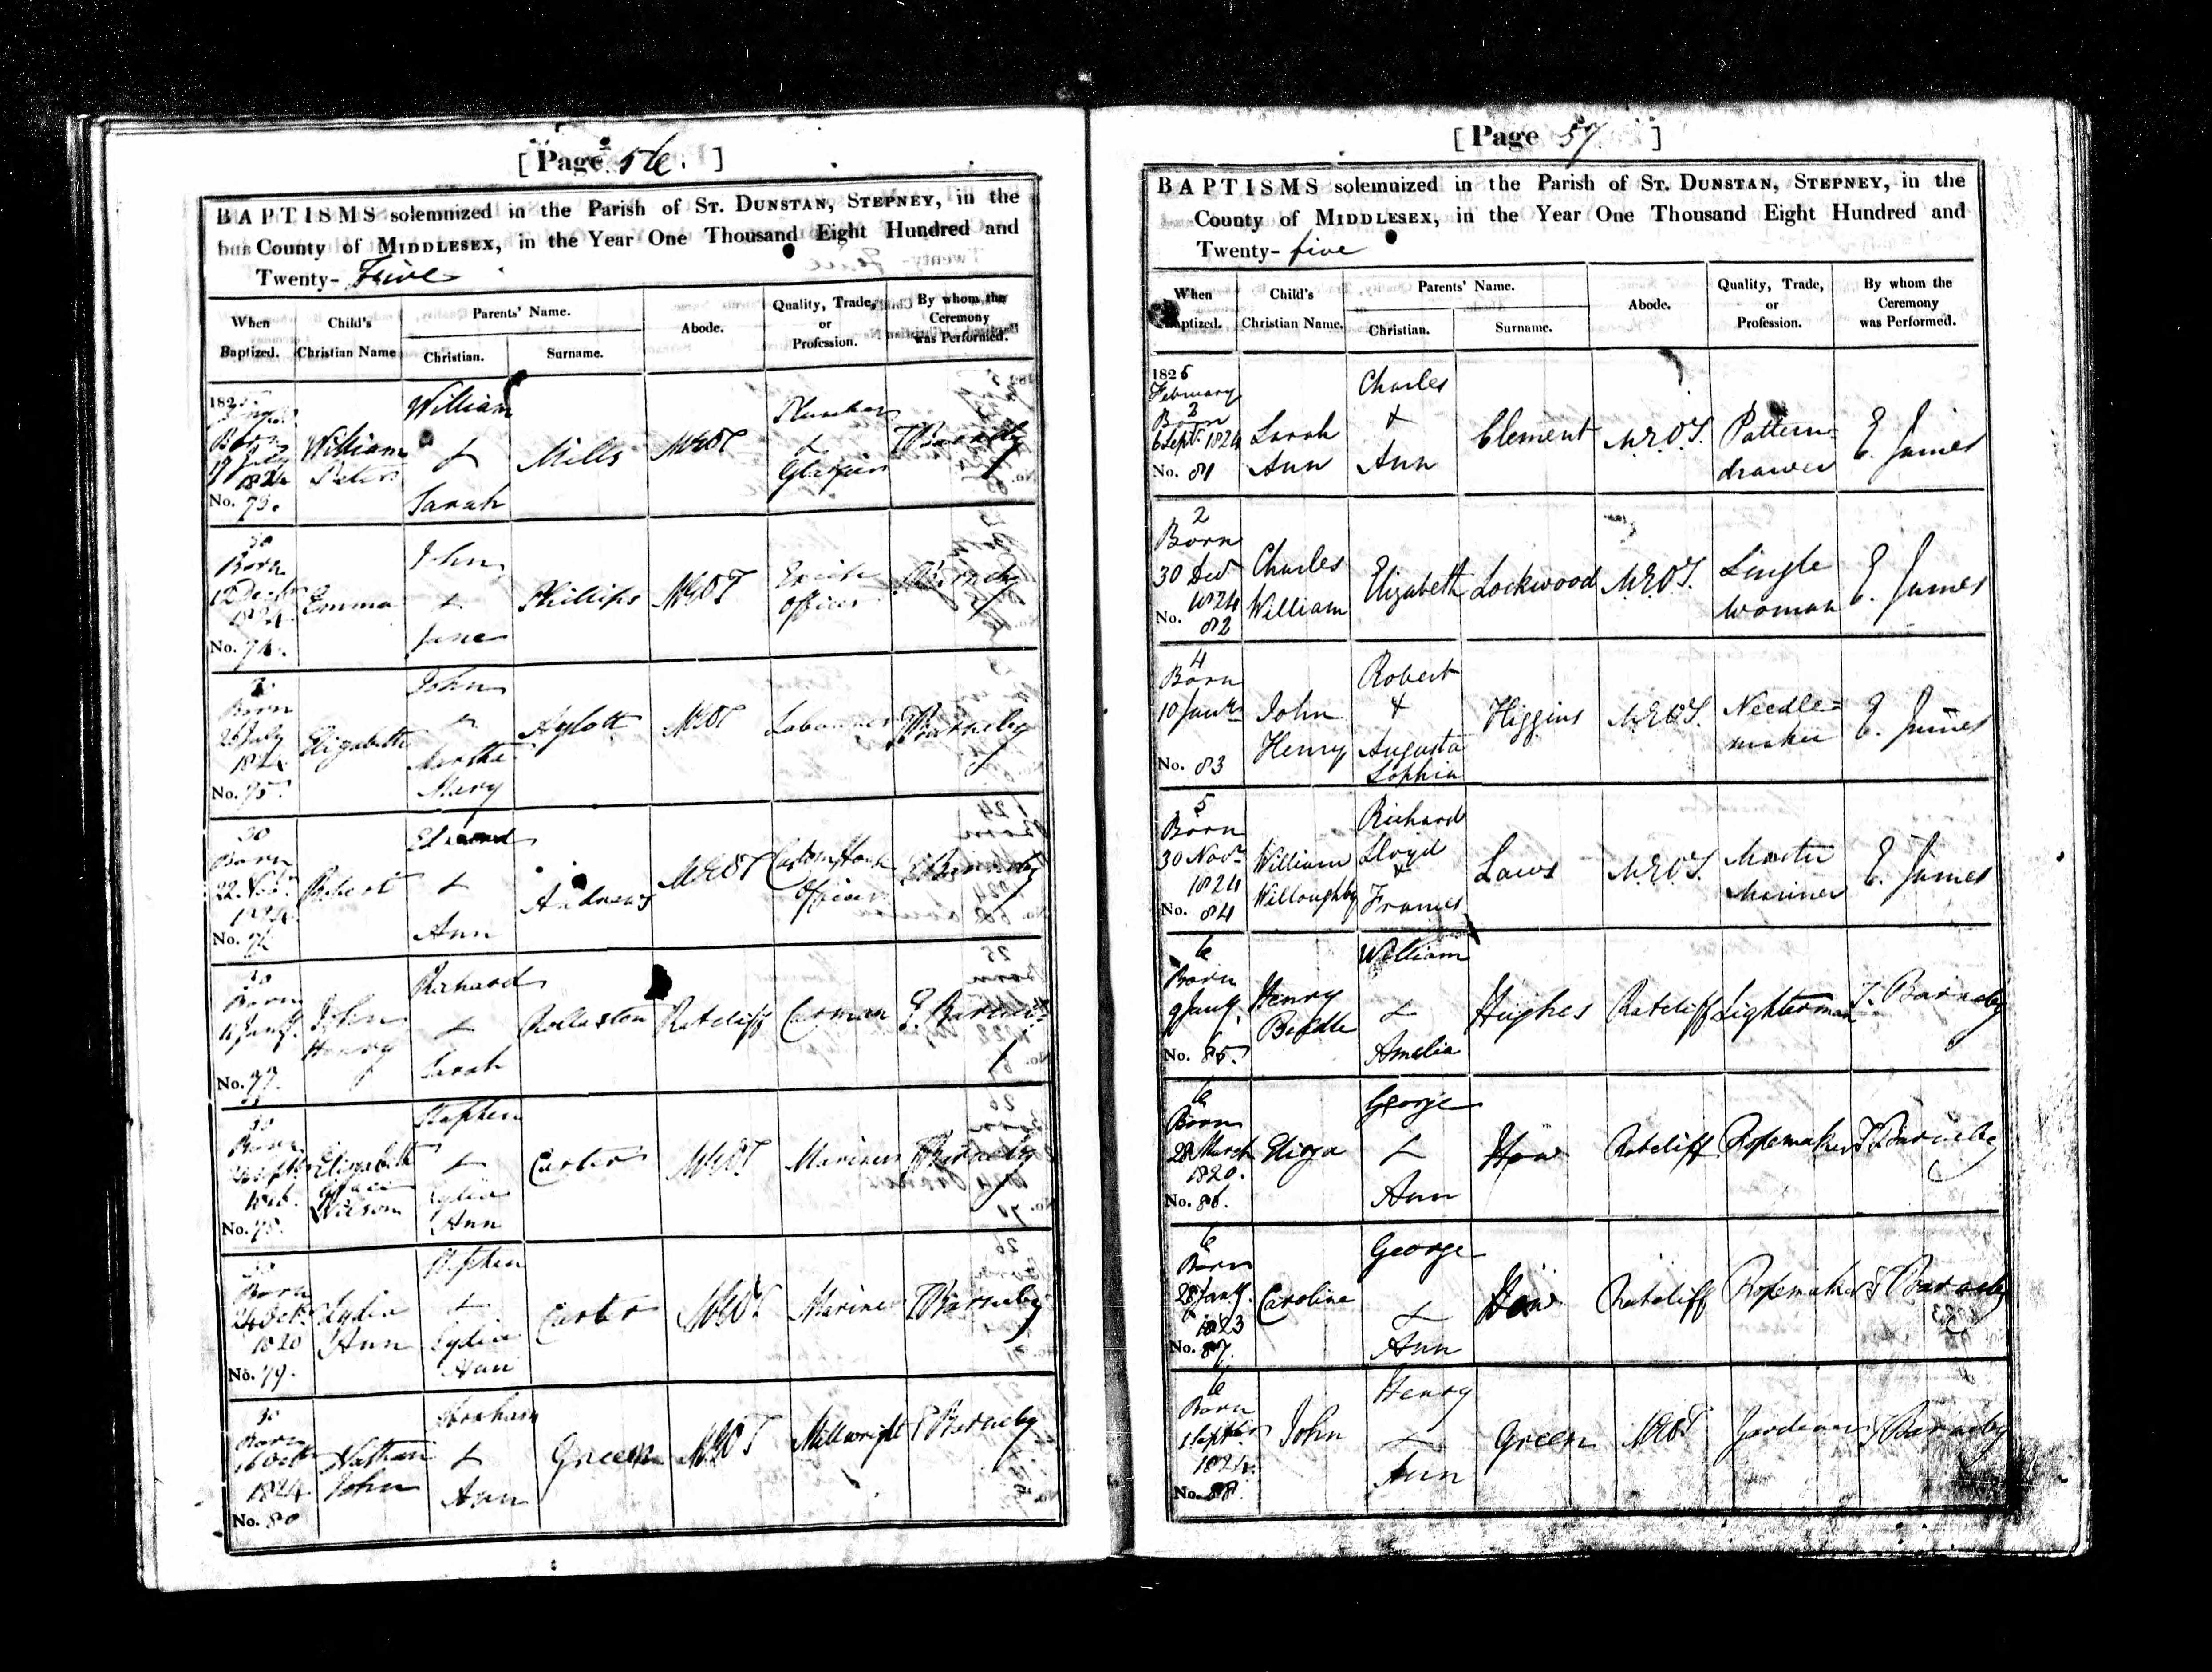 [ Page 56. ]
BAPTISMS solemnized in the Parish of ST. DUNSTAN, STEPNEY, in the
County of MIDDLESEX, in the Year One Thousand Eight Hundred and
Twenty- Five
When Baptized. Child's Christian Name Parents' Name. Christian. Surname. Abode. Quality, Trade, or Profession. By whom the Ceremony was Performed.
182
Born
1824
No. 73.
William
Peter
William
&
Sarah
Mills
MEOT
Plumber
&
Glazier
Barneby
30
Born
Decr
1824
No. 74.
Emma
John
&
Jane
Phillips
MEOT
Excise
Officer
Barneby
30
Born
26 July
182
No. 75
Elizabeth
John
&
Martha
Mary
Aylott
MEOT
Labourer
Barneby
30
Born
22 Novr
1824
No. 76
Robert
Edward
&
Ann
Andrews
MEOT
Custom House
Officer
Barneby
30
Born
Jany.
No. 77.
John
Henry
Richard
&
Sarah
Rollaston
Ratcliff
Carman
Barneby
30
Born
Septr
No. 78.
Elizabeth
Grace
Wilson
Stephen
&
Lydia
Ann
Carter
MEOT
Mariner
Barneby
30
Born
24 Octr
1820
No. 79.
Lydia
Ann
Stephen
&
Lydia
Ann
Carter
MEOT
Mariner
Barneby
30
Born
16 Octr
1824
No. 80
Nathan
John
Abraham
&
Ann
Green
MEOT
Millwright
Barneby
[ Page 57 ]
BAPTISMS solemnized in the Parish of ST. DUNSTAN, STEPNEY, in the
County of MIDDLESEX, in the Year One Thousand Eight Hundred and
Twenty- five
When Baptized. Child's Christian Name. Parents' Name. Christian. Surname. Abode. Quality, Trade, or Profession. By whom the Ceremony was Performed.
1825
February
2
Born
6 Septr. 1824
No. 81
Sarah
Ann
Charles
&
Ann
Clement
M.E.O.T.
Pattern=
drawer
E. James
2
Born
30 Decr
1824
No. 82
Charles
William
Elizabeth
Lockwood
M.E.O.T.
Single
woman
E. James
4
Born
10 Jany
No. 83
John
Henry
Robert
&
Augusta
Sophia
Higgins
M.E.O.T.
Needle=
maker
E. James
5
Born
30 Novr
1824
No. 84
William
Willoughby
Richard
Lloyd
&
Frances
Laws
M.E.O.T.
Master
Mariner
E. James
6
Born
9 Jany.
No. 85.
Henry
William
&
Amelia
Hughes
Ratcliff
Lighterman
T. Barneby
6
Born
28 March
1820.
No. 86.
Eliza
George
&
Ann
How
Ratcliff
Ropemaker
T. Barneby
6
Born
28 Jany.
1823
No. 87.
Caroline
George
&
Ann
How
Ratcliff
Ropemaker
T. Barneby
6
Born
1 Septber
1824.
No. 88.
John
Henry
&
Ann
Green
MEOT
Gardener
T. Barneby